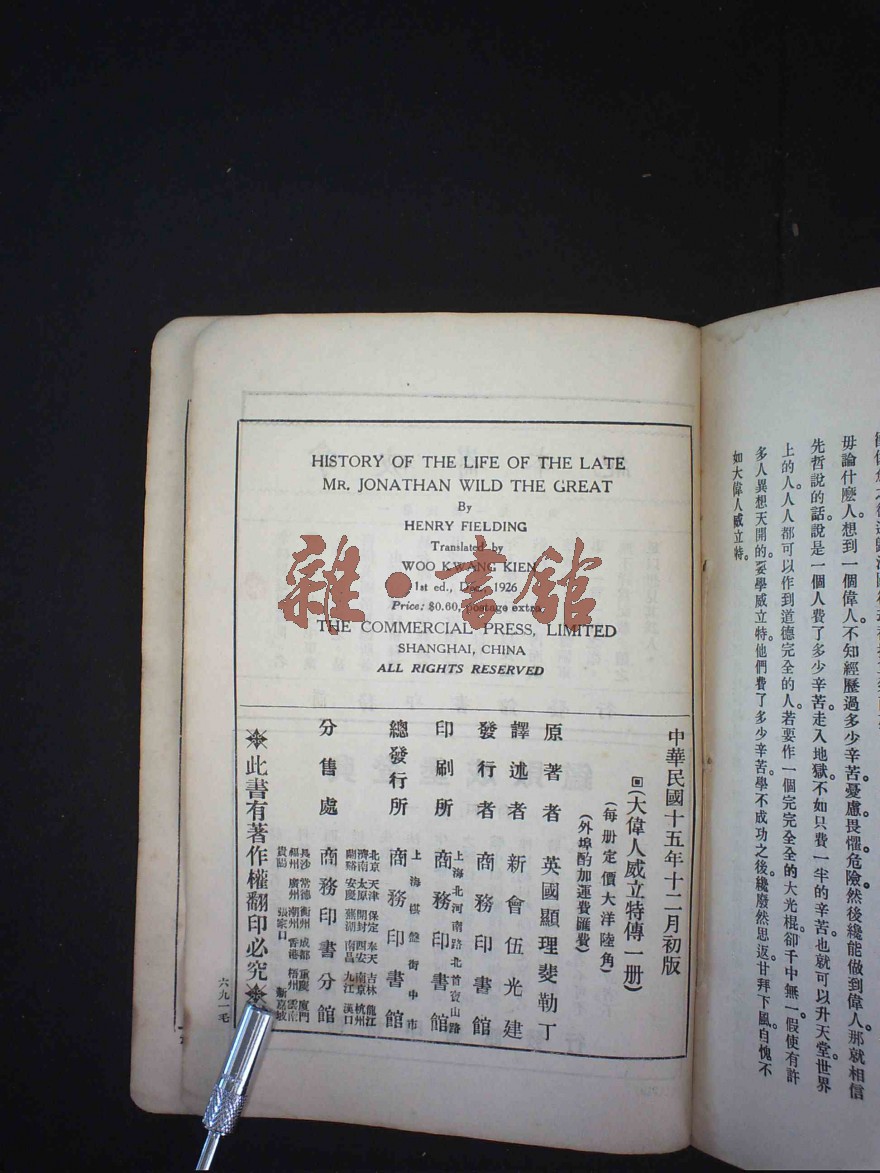 HISTORY OF THE LIFE OF THE LATE
MR. JONATHAN WILD THE GREAT
By
HENRY FIELDING
Translated by
WOO KWANG KIEN
1st ed., Dec., 1926
Price: $0.60, postage extra
THE COMMERCIAL PRESS, LIMITED
SHANGHAI, CHINA
ALL RIGHTS RESERVED
雜·書館
中華民國十五年十二月初版
(大偉人威立特傳一册)
(每册定價大洋陸角)
(外埠酌加運費匯費)
原著者 英國顯理斐勒丁
譯述者 新會伍光建
發行者 商務印書館
印刷所 上海北河南路北首寶山路 商務印書館
總發行所 上海棋盤街中市 商務印書館
分售處 商務印書分館
北京 天津 保定 奉天 吉林 龍江
濟南 太原 開封 西安 南京 杭州
蘭谿 安慶 蕪湖 南昌 九江 漢口
長沙 常德 衡州 成都 重慶 廈門
福州 廣州 潮州 香港 梧州 雲南
貴陽 張家口 新嘉坡
此書有著作權翻印必究
六九一毛
毋論什麽人想到一個偉人。不知經歷過多少辛苦憂慮畏懼危險然後纔能做到偉人。那就相信
先哲說的話。說是一個人費了多少辛苦走入地獄。不如只費一半的辛苦也就可以升天堂世界
上的人。人人都可以作到道德完全的人。若要作一個完完全全的大光棍。卻千中無一。假使有許
多人異想天開的。要學威立特。他們費了多少辛苦學不成功之後。纔廢然思返甘拜下風。自愧不
如大偉人威立特。